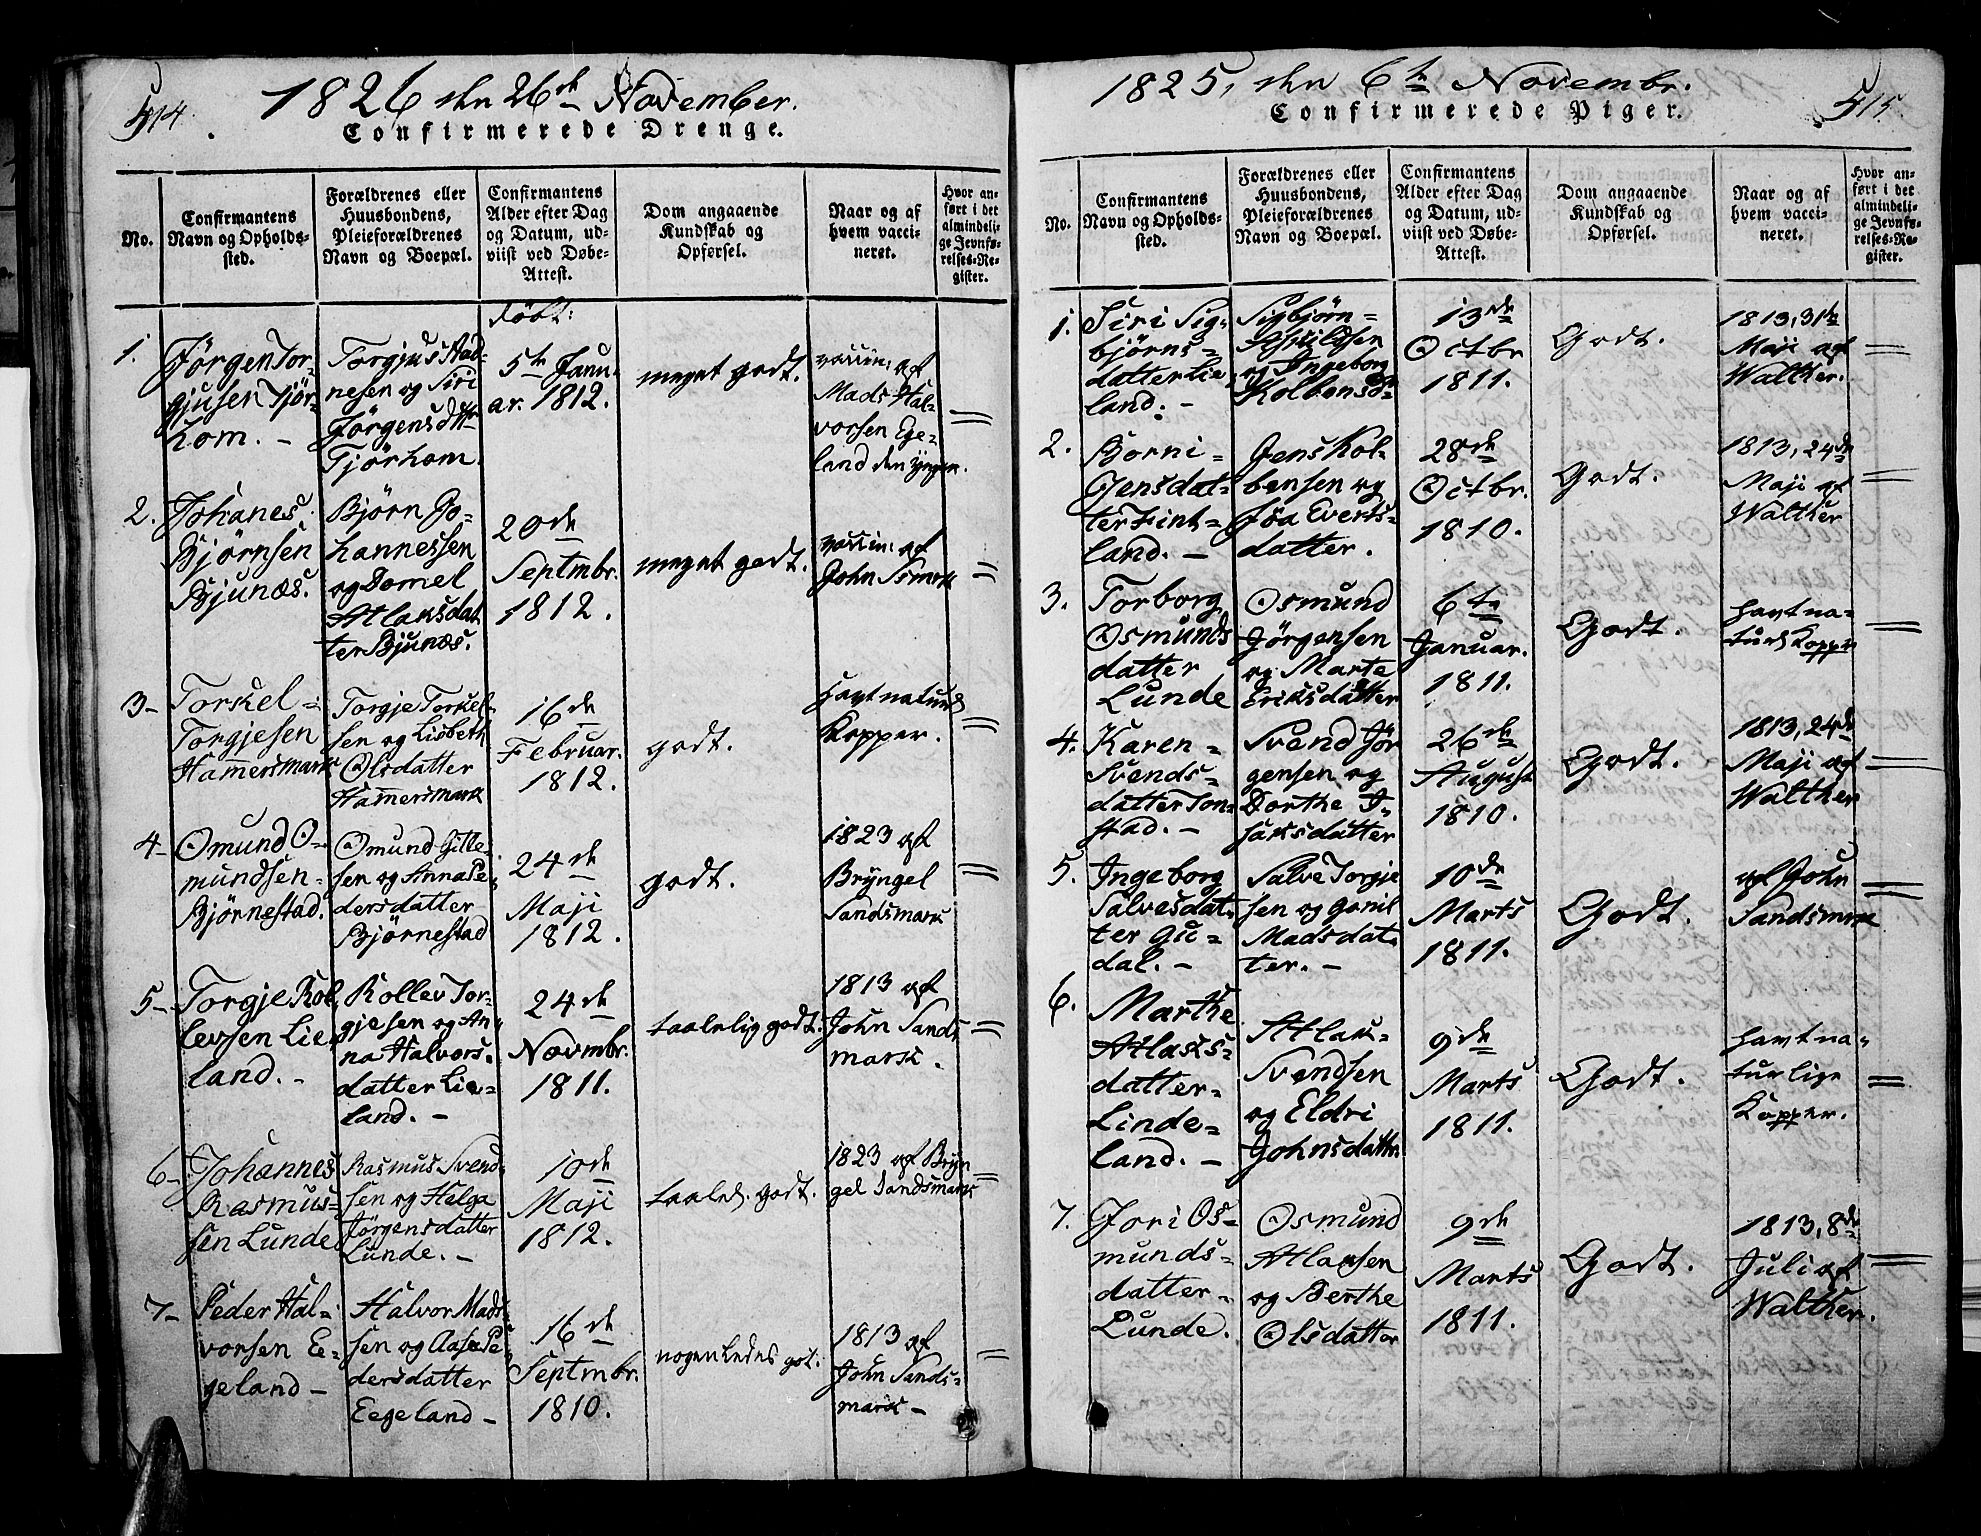 514.
1826 den 26de November.
Confirmerede Drenge.
No.
Confirmantens
Navn og Opholds-
sted.
Forældrenes eller
Huusbondens,
Pleieforældrenes
Navn og Boepæl.
Confirmantens
Alder efter Dag
og Datum, ud-
viist ved Døbe-
Attest.
Dom angaaende
Kundskab og
Opførsel.
Naar og af
hvem vacci-
neret.
Hvor an-
ført i det
almindeli-
ge Jevnfø-
relses-Re-
gister.
1.
Jørgen Tor-
gjusen Tjør-
hom. -
Torgjus Aad-
nesen og Siri
Jørgensdttr
Tjørhom.
døbt:
5te Janu-
ar. 1812.
meget godt.
vaccin: af
Mads Hal-
vorsen Ege-
land den yngre.
2.
Johanes
Bjørnsen
Bjunæs.
Bjørn Jo-
hannessen
og Domel
Atlaksdat
ter Bjunæs.
20de
Septmbr.
1812.
meget godt.
vaccin: af
John Smrk
3-
Torkel =
Torgjesen
Hamersmark
Torgje Torkel-
sen og Lisbeth
Olsdatter
Hamersmark
16de
Februar.
1812.
godt.
havt naturl
Kopper.
4-
Omund O-
mundsen-
Bjørnestad.
Omund Gitle-
sen og Anna Pe-
dersdatter
Bjørnestad
24de
Maji
1812.
godt.
1823 af
Bryngel
Sandsmark
5-
Torgje Rol
levsen Lie-
land. -
Rollev Tor-
gjesen og An-
na Halvors-
datter Lie-
land. -
24de
Novmbr.
1811.
taalelig godt.
1813 af
John Sands
mark.
6-
Johannes
Rasmus-
sen Lunde
Rasmus Svend
sen og Helga
Jørgensdatter
Lunde. -
10de
Maji
1812.
taalel. godt.
1823 af Bryn
gel Sandsmark
7-
Peder Hal-
vorsen Ee-
geland -
Halvor Mads
sen og Aase Pe-
dersdatter
Eegeland -
16de
Septmbr.
1810.
nogenledes got.
1813 af
John Sands-
mark -
515.
1825, den 6te Novembr.
Confirmerede Piger.
No.
Confirmantens
Navn og Opholds-
sted.
Forældrenes eller
Huusbondens,
Pleieforældrenes
Navn og Boepæl.
Confirmantens
Alder efter Dag
og Datum, ud-
viist ved Døbe-
Attest.
Dom angaaende
Kundskab og
Opførsel.
Naar og af
hvem vacci-
neret.
Hvor an-
ført i det
almindeli-
ge Jevnfø-
relses-Re-
gister.
1.
Siri Sig-
bjørns-
datter Lie
land. -
Sigbjørn-
Aschildsen
og Ingeborg
Kolbensd
13de
Octbr
1811.
Godt.
1813, 31te
Maji af
Walther.
2.
Borni-
Jensdat-
ter Fint-
land. -
Jens Kol-
bensen og
Jøa Everts-
datter.
28de
Octbr.
1810.
Godt.
1813, 24de
Maji af
Walther
3.
Torborg
Osmunds
datter
Lunde
Osmund
Jørgensen
og Marte
Eriksdatter
6te
Januar.
1811.
Godt.
havt na-
turl Kopper
4.
Karen-
Svends-
datter Ton-
stad. -
Svend Jør
gensen og
Dorthe I-
saksdatter
26de
August
1810.
Godt.
1813, 24de
Maji af
Walther
5.
Ingeborg
Salvesdat-
ter Gu-
dal. -
Salve Torgje
sen og Gunil
Madsdat-
ter. -
10de
Marts
1811.
Godt.
af John
Sandsmrk
6.
Marthe
Atlaks-
datter-
Linde-
land. -
Atlak-
Svendsen
og Eldri
Johnsdattr
9de
Marts
1811.
Godt.
havt na-
turlige
Kopper.
7.
Jori Os-
munds-
datter-
Lunde.
Osmund
Atlaksen
og Berthe
Olsdatter
9de
Marts
1811.
Godt.
1813, 8de
Juli af
Walther.